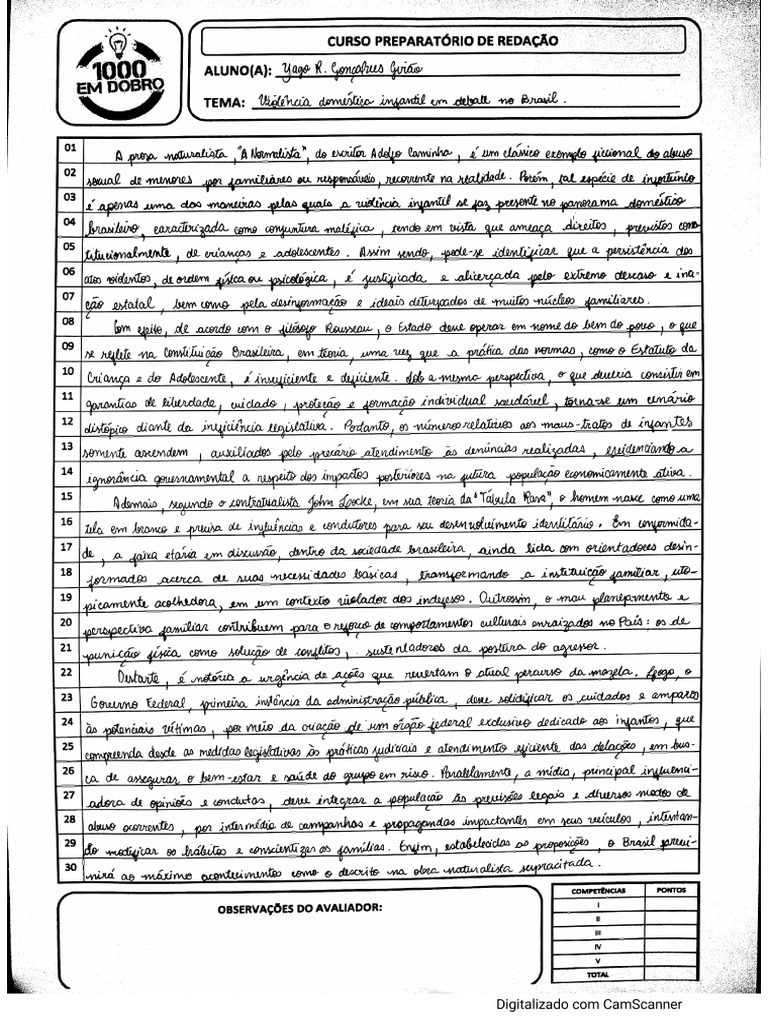 1000
EM DOBRO
CURSO PREPARATÓRIO DE REDAÇÃO
ALUNO(A): Yago R. Gonçalves
TEMA: Violência doméstica infantil em debate no Brasil.
01 A prosa naturalista, "A Normalista", do escritor Adolfo Caminha, é um clássico exemplo ficcional do abuso
02 sexual de menores por familiares ou responsáveis, recorrente na realidade. Porém, tal espécie de infortúnio
03 é apenas uma das maneiras pelas quais a violência infantil se faz presente no panorama doméstico
04 brasileiro, caracterizada como conjuntura maléfica, tendo em vista que ameaça direitos, previstos cons
05 titucionalmente, de crianças e adolescentes. Assim sendo, pode-se identificar que a persistência dos
06 atos violentos, de ordem física ou psicológica, é justificada e alicerçada pelo extremo descaso e ina-
07 ção estatal, bem como pela desinformação e ideais deturpados de muitos núcleos familiares.
08 Com efeito, de acordo com o filósofo Rousseau, o Estado deve operar em nome do bem do povo, o que
09 se reflete na Constituição Brasileira, em teoria, uma vez que a prática das normas, como o Estatuto da
10 Criança e do Adolescente, é insuficiente e deficiente. Sob a mesma perspectiva, o que deveria consistir em
11 garantias de liberdade, cuidado, proteção e formação individual saudável, torna-se um cenário
12 distópico diante da ineficiência legislativa. Portanto, os números relativos aos maus-tratos de infantes
13 somente ascendem, auxiliados pelo precário atendimento às denúncias realizadas, evidenciando a
14 ignorância governamental a respeito dos impactos posteriores na futura população economicamente ativa.
15 Ademais, segundo o contratualista John Locke, em sua teoria da "Tábula Rasa", o homem nasce como uma
16 tela em branco e precisa de influências e condutores para seu desenvolvimento identitário. Em conformida-
17 de, a faixa etária em discussão, dentro da sociedade brasileira, ainda lida com orientadores desin-
18 formados acerca de suas necessidades básicas, transformando a instituição familiar, uto-
19 picamente acolhedora, em um contexto violador dos indefesos. Outrossim, o mau planejamento e
20 perspectiva familiar contribuem para o reforço de comportamentos culturais enraizados no País: os de
21 punição física como solução de conflitos, sustentadores da postura do agressor.
22 Destarte, é notória a urgência de ações que revertam o atual percurso da mazela. Logo, o
23 Governo Federal, primeira instância da administração pública, deve solidificar os cuidados e amparos
24 às potenciais vítimas, por meio da criação de um órgão federal exclusivo dedicado aos infantos, que
25 compreenda desde as medidas legislativas às práticas judiciais e atendimento eficiente das delações, em bus-
26 ca de assegurar o bem-estar e saúde do grupo em risco. Paralelamente, a mídia, principal influenci-
27 adora de opiniões e condutas, deve integrar a população às previsões legais e diversos modos de
28 abuso ocorrentes, por intermédio de campanhas e propagandas impactantes em seus veículos, intentan-
29 do modificar os hábitos e conscientizar as famílias. Enfim, estabelecidas as proposições, o Brasil preve-
30 nirá ao máximo acontecimentos como o descrito na obra naturalista supracitada.
OBSERVAÇÕES DO AVALIADOR:
COMPETÊNCIAS PONTOS
I
II
III
IV
V
TOTAL
Digitalizado com CamScanner